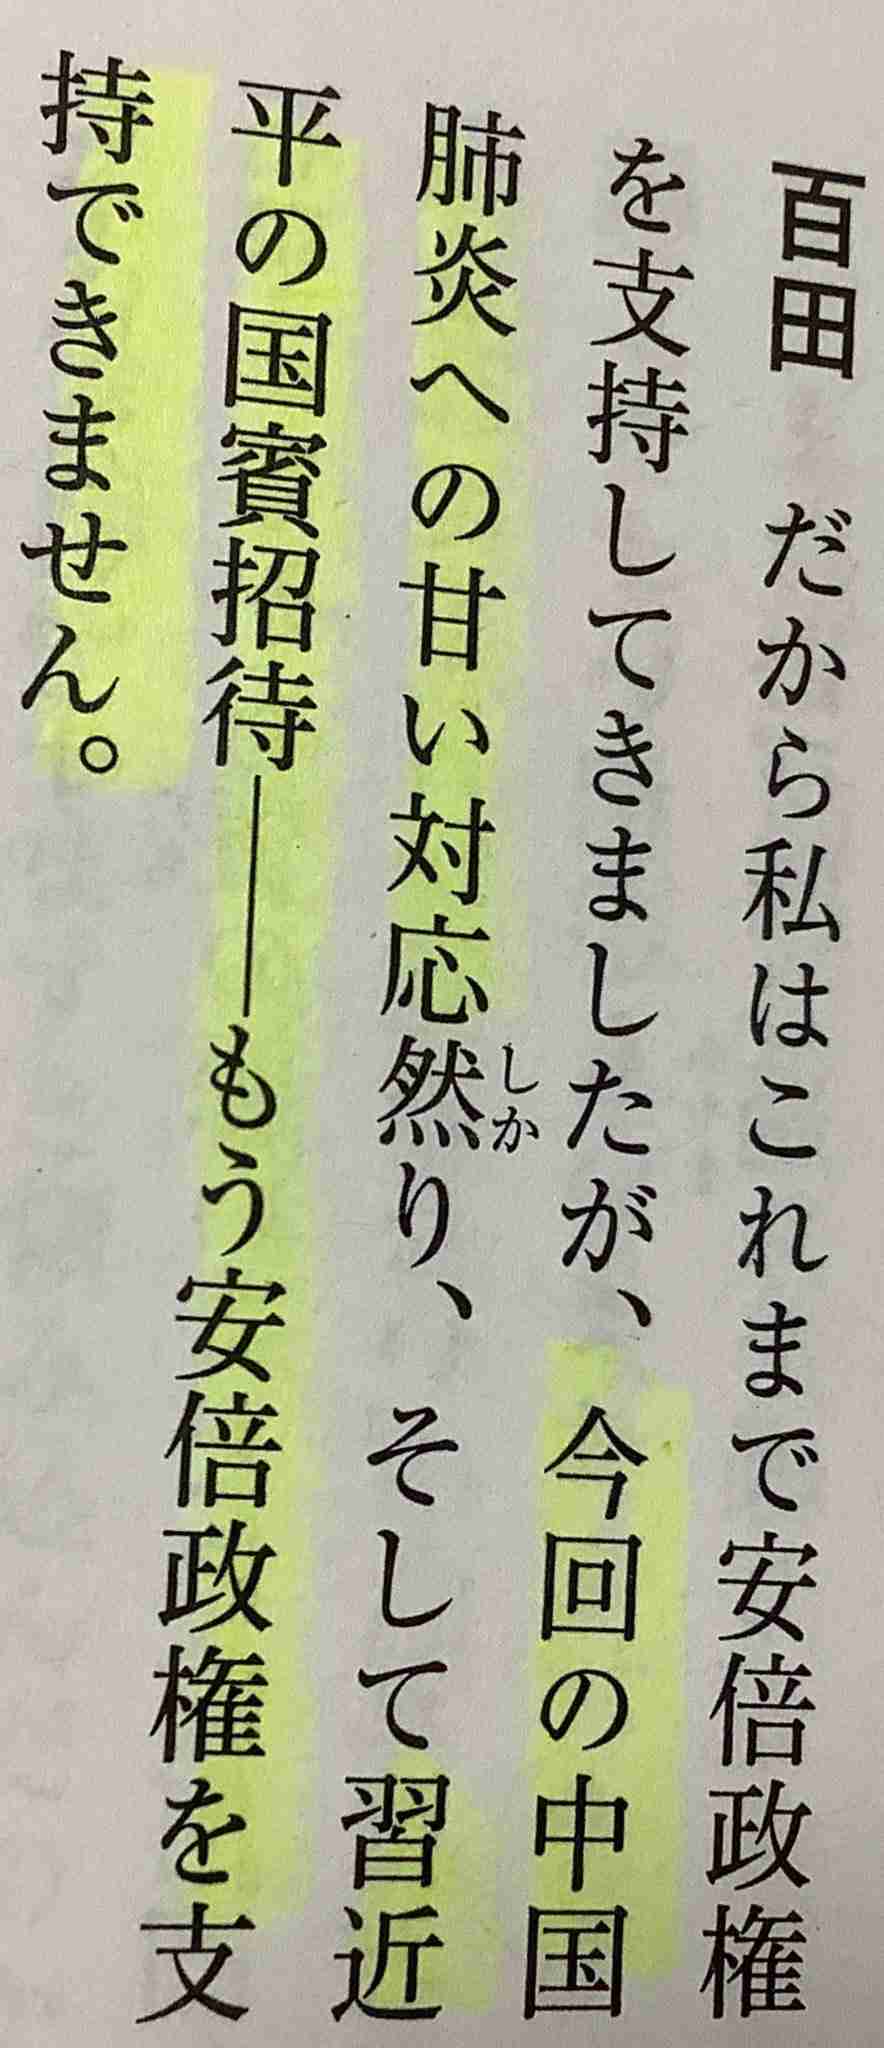 百田　だから私はこれまで安倍政権
を支持してきましたが、今回の中国
肺炎への甘い対応然り、そして習近
しか
平の国賓招待――もう安倍政権を支
持できません。